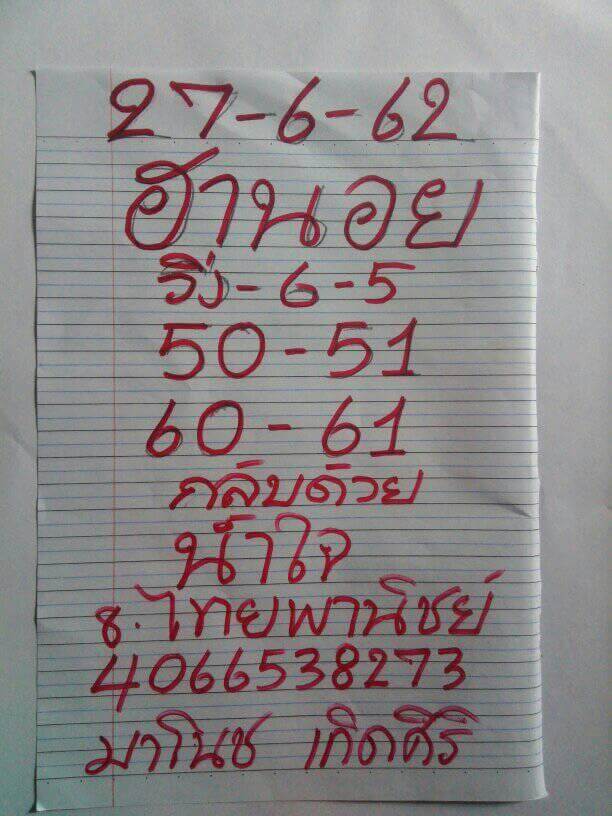 27-6-62
ฮานอย
วิ่ง-6-5
50-51
60-61
กลับด้วย
น้ำใจ
ธ.ไทยพานิชย์
4066538273
มาโนช เกิดศิริ